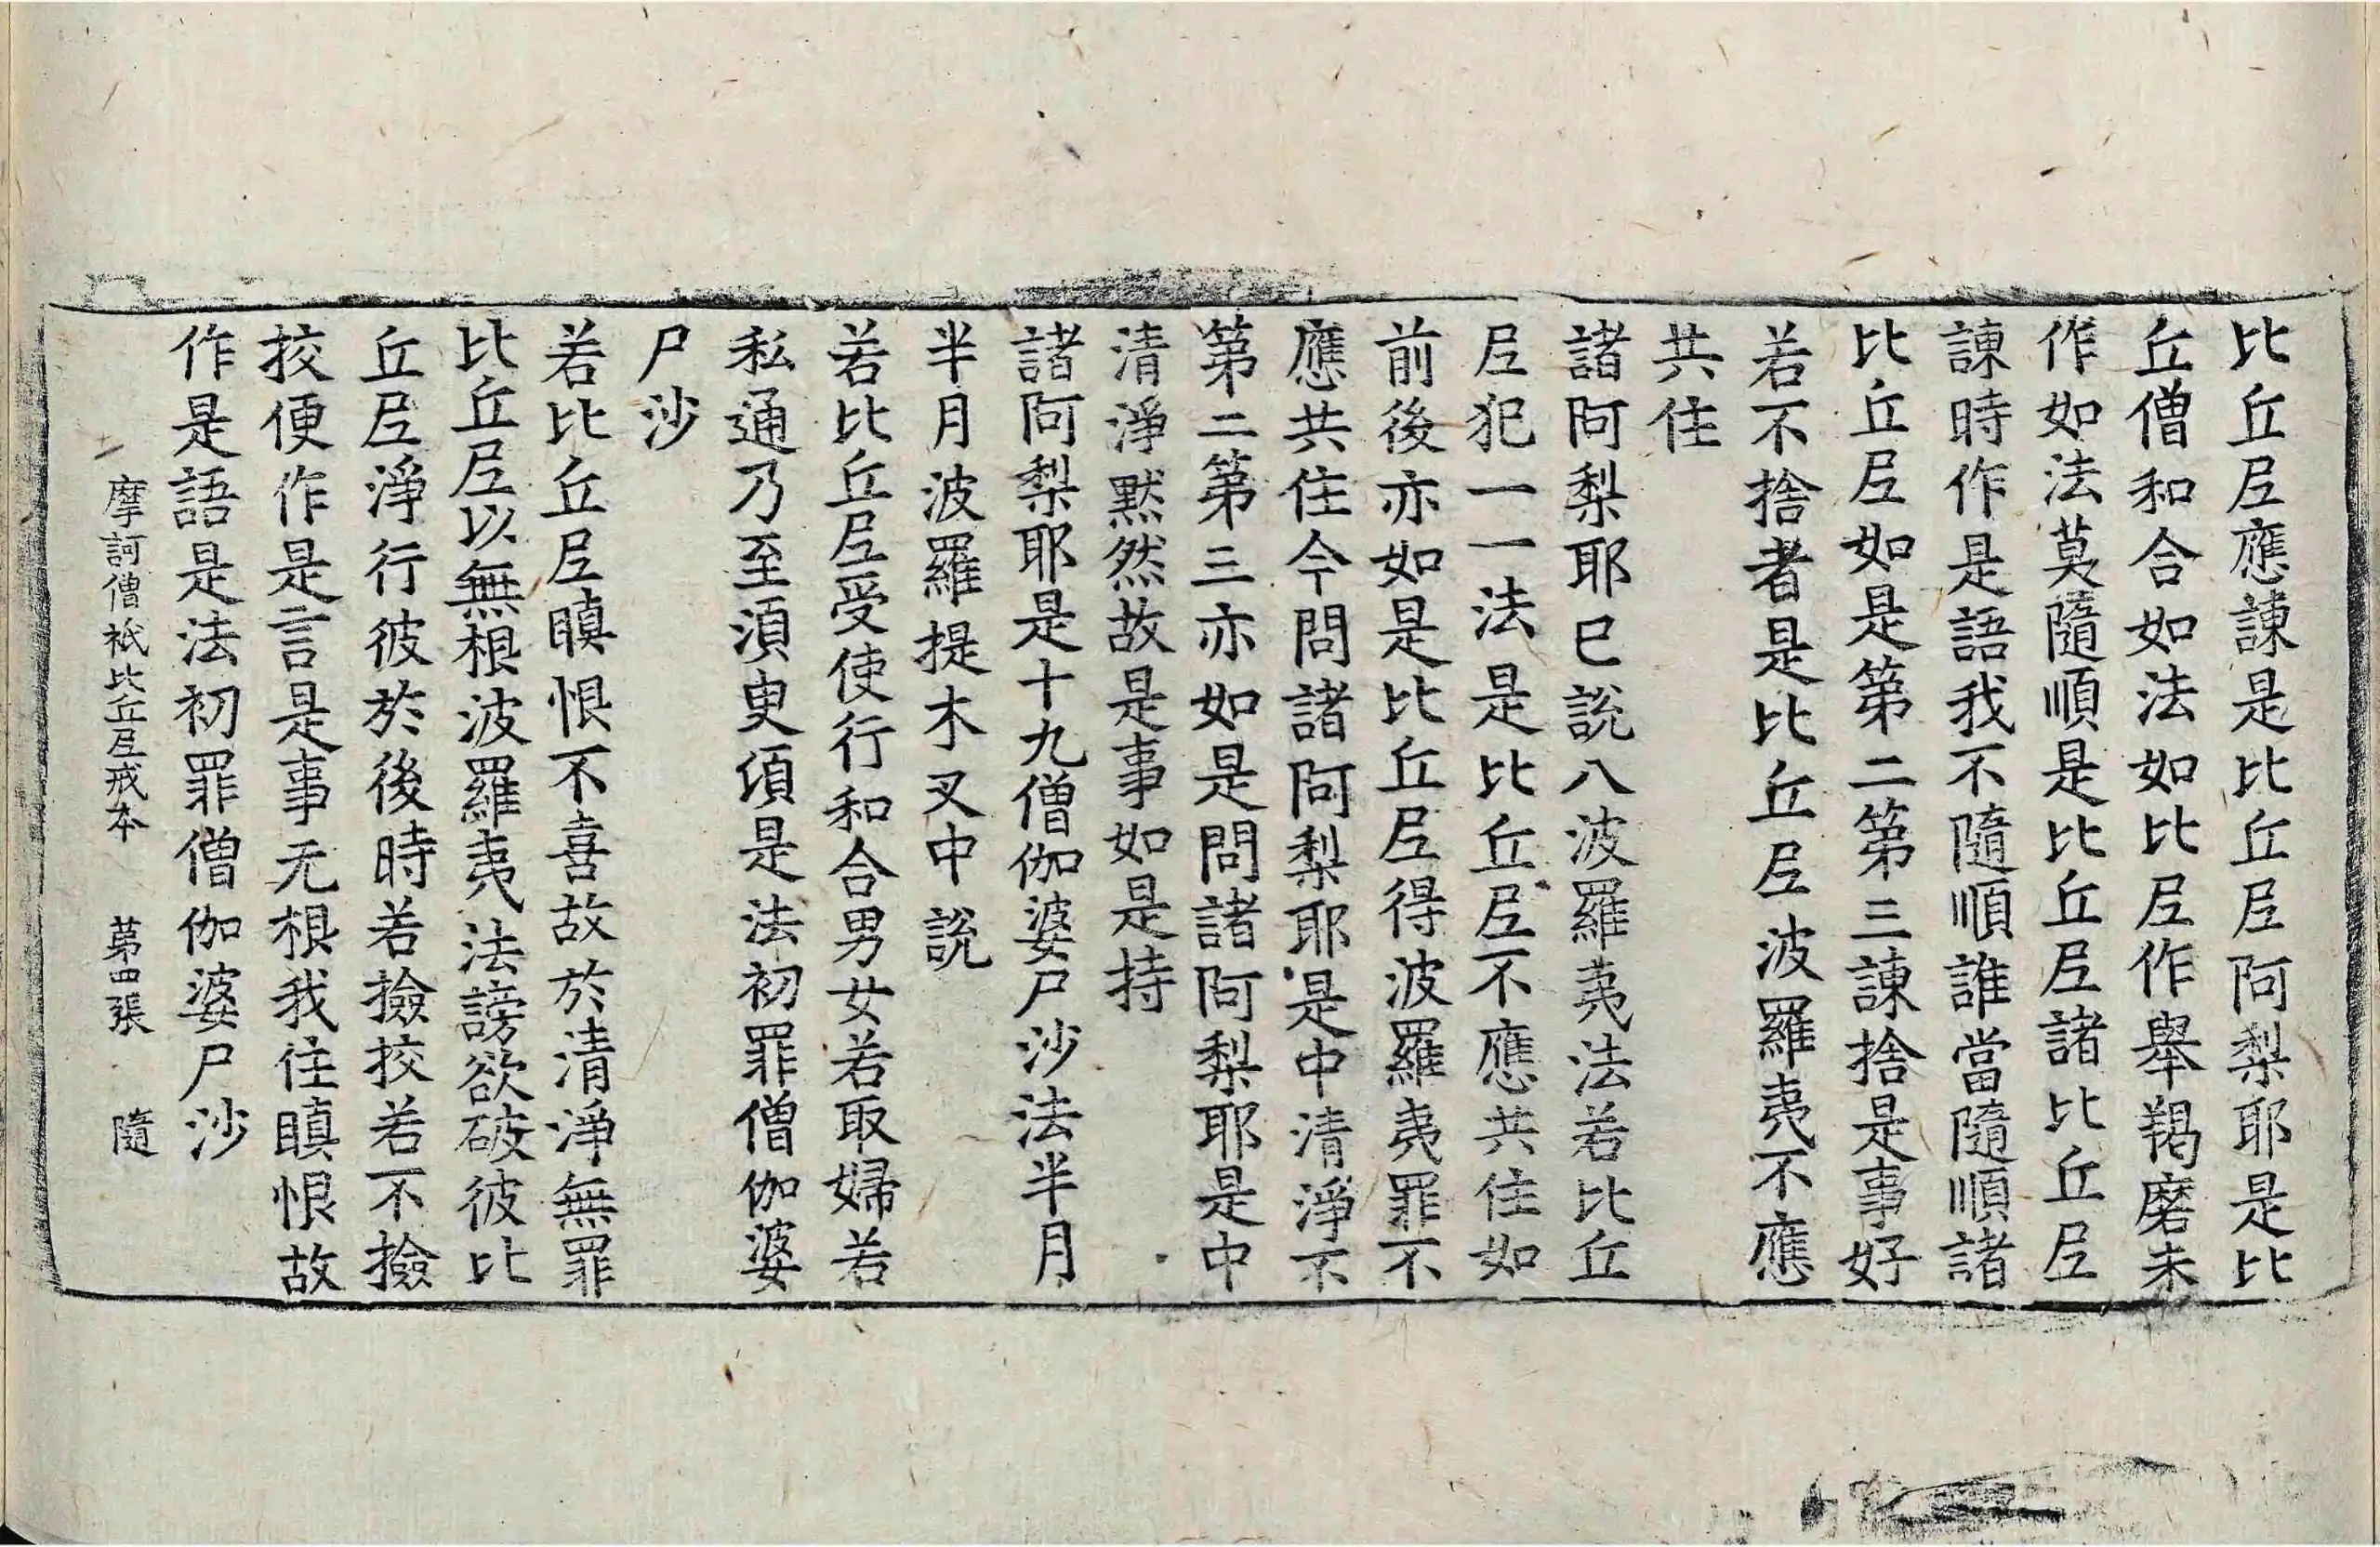 比丘𡰱應諫是比丘𡰱阿梨耶是比
丘僧和合如法如比𡰱作舉羯磨未
作如法莫隨順是比丘𡰱諸比丘𡰱
諫時作是語我不隨順誰當隨順諸
比丘𡰱如是第二第三諫捨是事好
若不捨者是比丘𡰱波羅夷不應
共住
諸阿梨耶已說八波羅夷法若比丘
𡰱犯一一法是比丘𡰱不應共住如
前後亦如是比丘𡰱得波羅夷罪不
應共住今問諸阿梨耶是中清淨不
第二第三亦如是問諸阿梨耶是中
清淨黙然故是事如是持
諸阿梨耶是十九僧伽婆尸沙法半月
半月波羅提木叉中說
若比丘𡰱受使行和合男女若取婦若
私通乃至湏臾頃是法初罪僧伽婆
尸沙
若比丘𡰱瞋恨不喜故於清淨無罪
比丘𡰱以無根波羅夷法謗欲破彼比
丘𡰱淨行彼於後時若撿挍若不撿
挍便作是言是事无根我住瞋恨故
作是語是法初罪僧伽婆尸沙
摩訶僧祇比丘𡰱戒本 第四張 隨